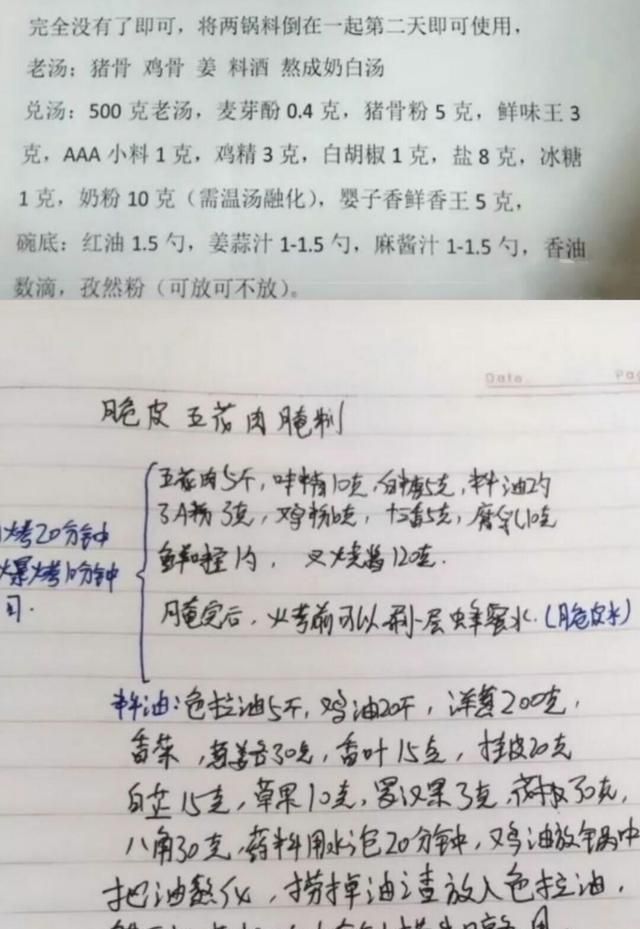 完全没有了即可，将两锅料倒在一起第二天即可使用，
老汤：猪骨 鸡骨 姜 料酒 熬成奶白汤
兑汤：500 克老汤，麦芽酚 0.4 克，猪骨粉 5 克，鲜味王 3
克，AAA 小料 1 克，鸡精 3 克，白胡椒 1 克，盐 8 克，冰糖
1 克，奶粉 10 克（需温汤融化），婴子香鲜香王 5 克，
碗底：红油 1.5 勺，姜蒜汁 1-1.5 勺，麻酱汁 1-1.5 勺，香油
数滴，孜然粉（可放可不放）。
Date
Pag
脆皮 五花肉 腌制
五花肉5斤，味精10克，白糖5克，料油2勺
3A粉3克，鸡粉6克，十三香5克，腐乳10克
鲜味宝1勺，叉烧酱120克.
烤20分钟
爆烤10分钟
可.
腌完后，火考前可以刷一层蜂蜜水.（脆皮水）
料油：色拉油5斤，鸡油20斤，洋葱200克，
香菜，葱姜各30克，香叶15克，桂皮20克
白芷15克，草果10克，罗汉果3克，30克，
八角30克，药料用水泡20分钟，鸡油放锅中
把油熬化，捞掉油渣放入色拉油，